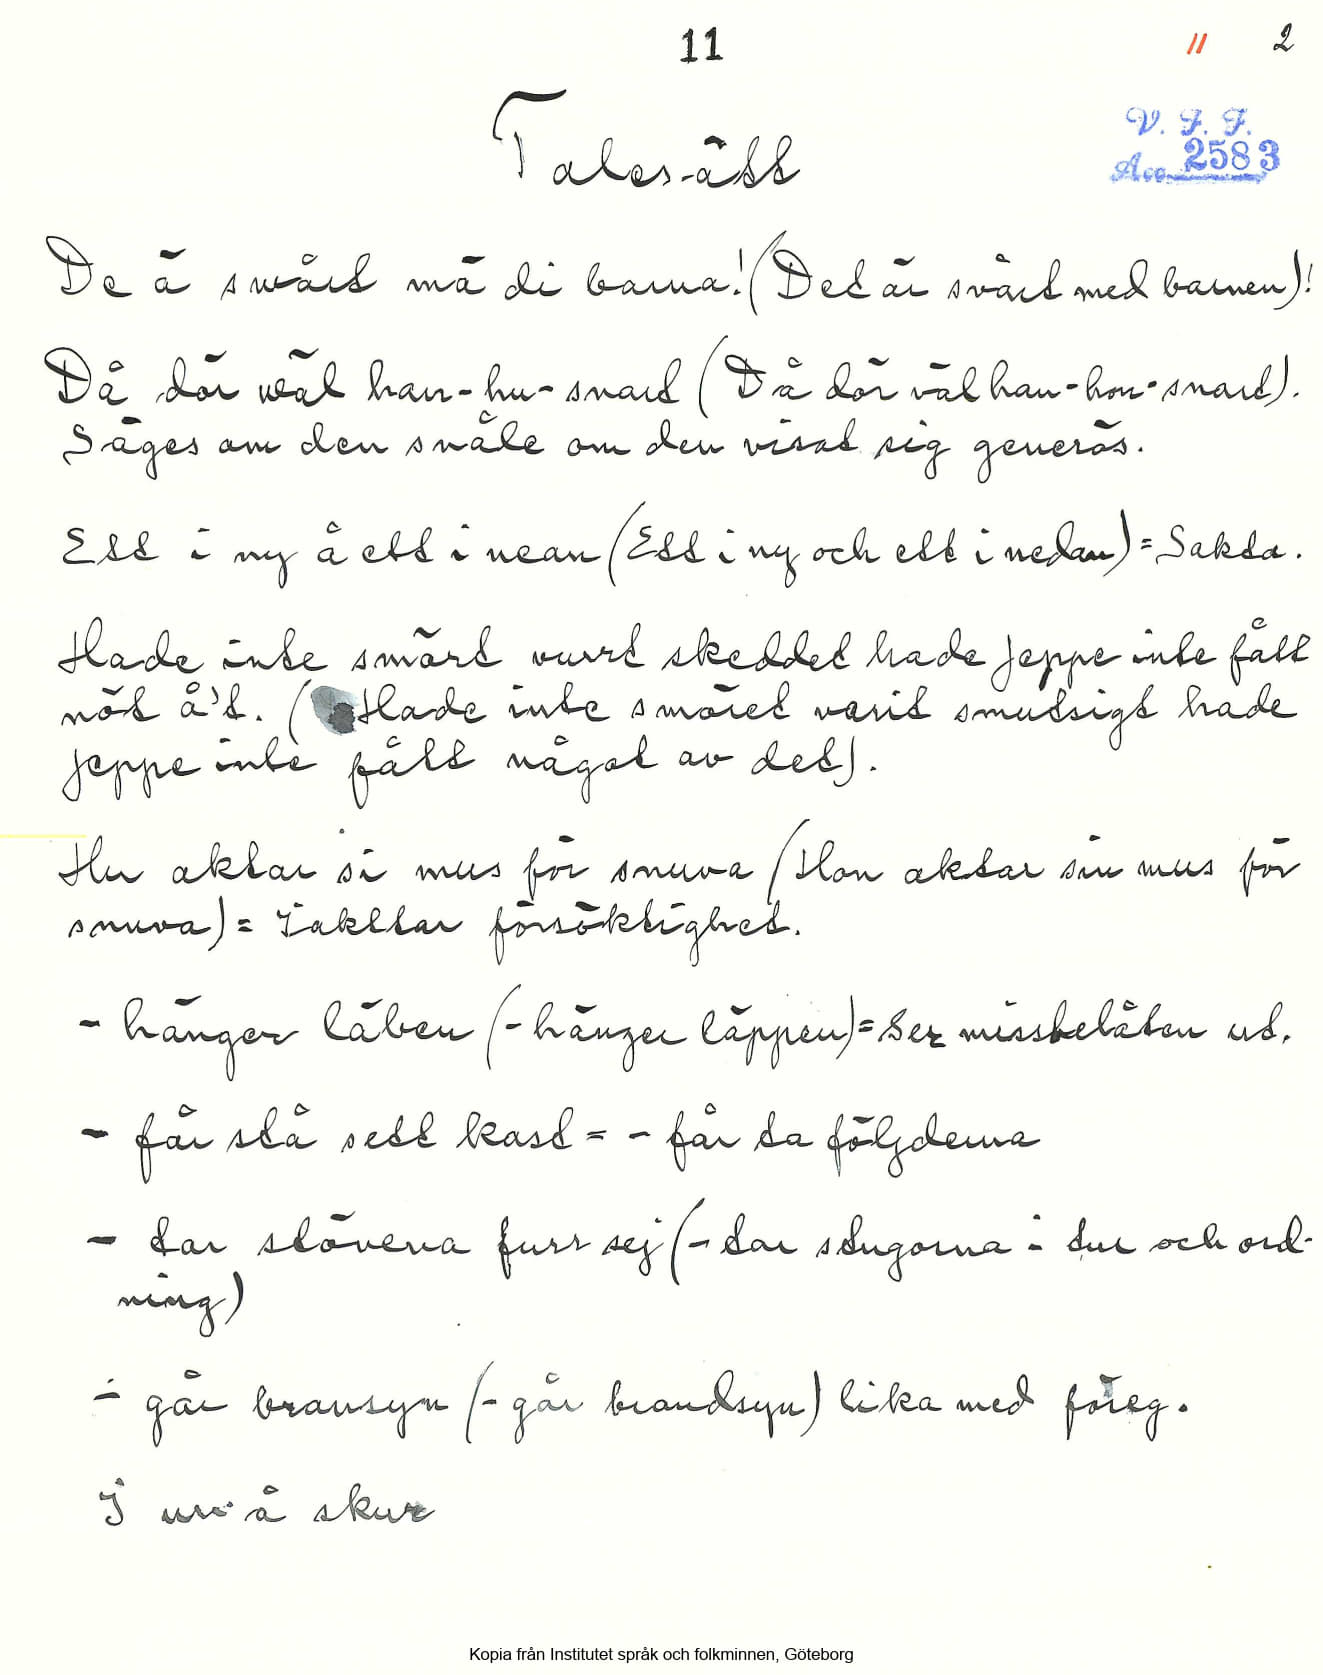 11
11 2
V. F. F.
Acc. 2583
Talesätt
De ä swårt mä di barna! (Det är svårt med barnen)!
Då dör wäl han-hu-snart (Då dör väl han-hon-snart).
Säges om den snåle om den visat sig generös.
Ett i ny å ett i nean (Ett i ny och ett i nedan) = Sakta.
Hade inte smört vurrt skeddet hade Jeppe inte fått
nöt å't. (Hade inte smöret varit smutsigt hade
Jeppe inte fått något av det).
Hu aktar si mus för snuva (Hon aktar sin mus för
snuva) = Iakttar försöktighet.
- hänger läben (- hänger läppen) = Ser missbelåten ut.
- får stå sett kast = - får ta följderna
- tar stövena furr sej (- tar stugorna i tur och ord-
ning)
- går bransyn (- går brandsyn) lika med föreg.
I ur å skur
Kopia från Institutet språk och folkminnen, Göteborg